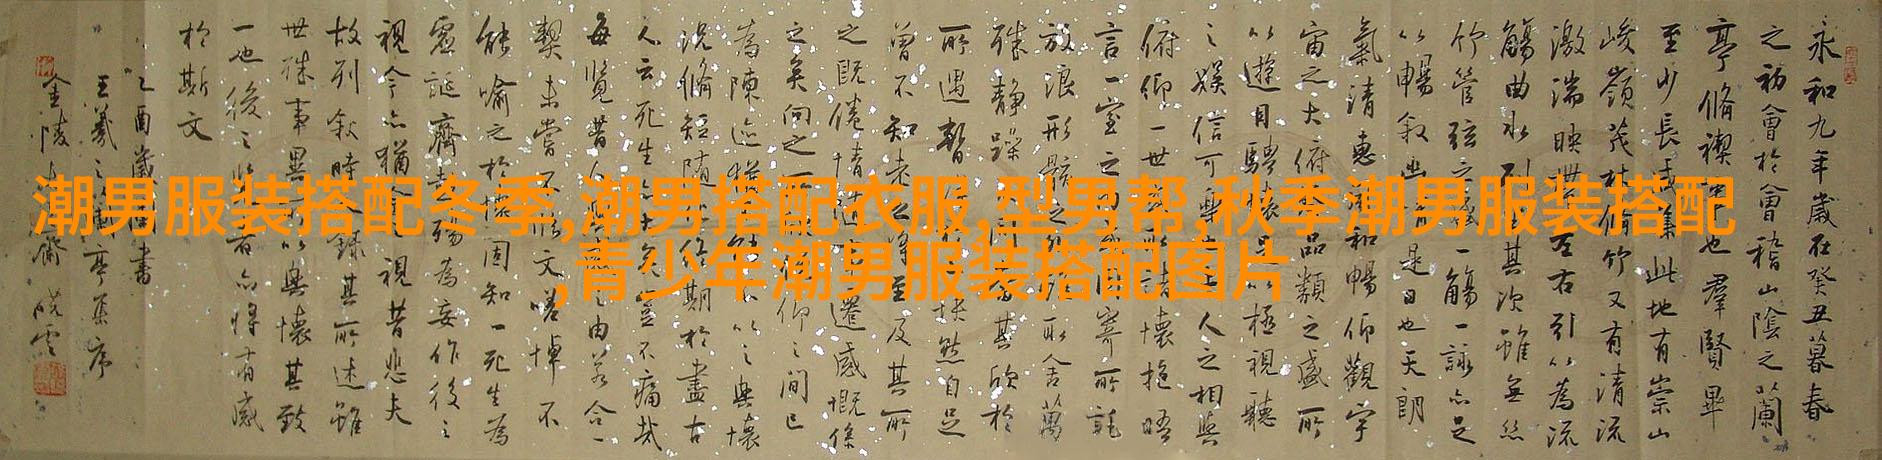 潮男服装搭配冬季,潮男搭配衣服,型男帮,秋季潮男服装搭配
,青少年潮男服装搭配图片
永和九年歲在癸丑暮春
之初會於會稽山陰之蘭
亭脩禊事也羣賢畢
至少長咸集此地有崇山
峻嶺茂林脩竹又有清流
激湍映帶左右引以為流
觴曲水列坐其次雖無絲
竹管弦之盛一觴一詠亦足
以暢敘幽情是日也天朗
氣清惠風和暢仰觀宇
宙之大俯察品類之盛所
以遊目騁懷足以極視聽
之娛信可樂也夫人之相與
俯仰一世或取諸懷抱晤
言一室之內或因寄所託
放浪形骸之外雖取舍萬
殊靜躁不同當其欣於
所遇暫得於己快然自足
曾不知老之將至及其所
之既倦情隨事遷感慨係
之矣向之所欣俯仰之間已
為陳迹猶不能不以之興懷
況脩短隨化終期於盡古
人云死生亦大矣豈不痛哉
每覽昔人興感之由若合一
契未嘗不臨文嗟悼不
能喻之於懷固知一死生為
虛誕齊彭殤為妄作後之
視今亦猶今之視昔悲夫
故列敘時人錄其所述雖
世殊事異所以興懷其致
一也後之覽者亦將有感
於斯文
乙酉歲書
王羲之蘭亭集序
金陵齋